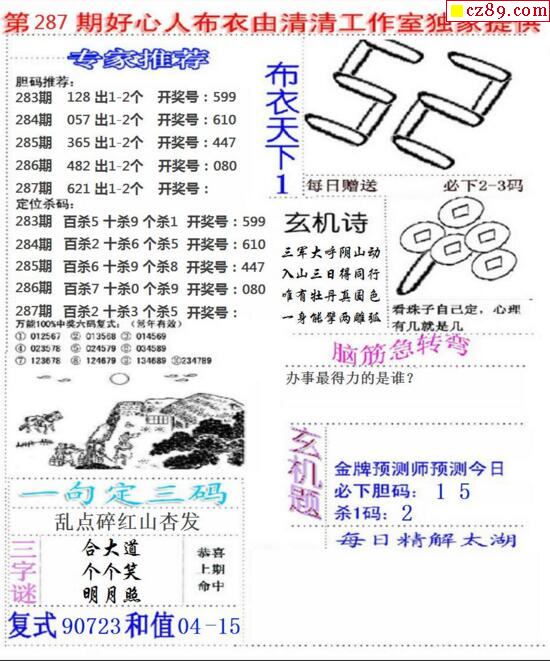 第287期好心人布衣由清清工作室独家提供
cz89.com
专家推荐
胆码推荐:
283期 128出1-2个 开奖号:599
284期 057出1-2个 开奖号:610
285期 365出1-2个 开奖号:447
286期 482出1-2个 开奖号:080
287期 621出1-2个 开奖号:
定位杀码:
283期 百杀5十杀9个杀1 开奖号:599
284期 百杀2十杀6个杀5 开奖号:610
285期 百杀6十杀9个杀8 开奖号:447
286期 百杀7十杀0个杀9 开奖号:080
287期 百杀2十杀3个杀5 开奖号:
万能100%中奖六码复式:(常年有效)
①012567 ②013568 ③014569
④023578 ⑤024579 ⑥034589
⑦123678 ⑧124679 ⑨134689 ⑩234789
一句定三码
乱点碎红山杏发
三字谜
合大道
个个笑
明月照
恭喜
上期
命中
复式90723和值04-15
布衣天下1
52
每日赠送 必下2-3码
玄机诗
三军大呼阴山动
入山三日得同行
唯有牡丹真国色
一身能擘两雕弧
看珠子自己定,心理
有几就是几
脑筋急转弯
办事最得力的是谁?
玄机题
金牌预测师预测今日
必下胆码: 1 5
杀1码: 2
每日精解太湖